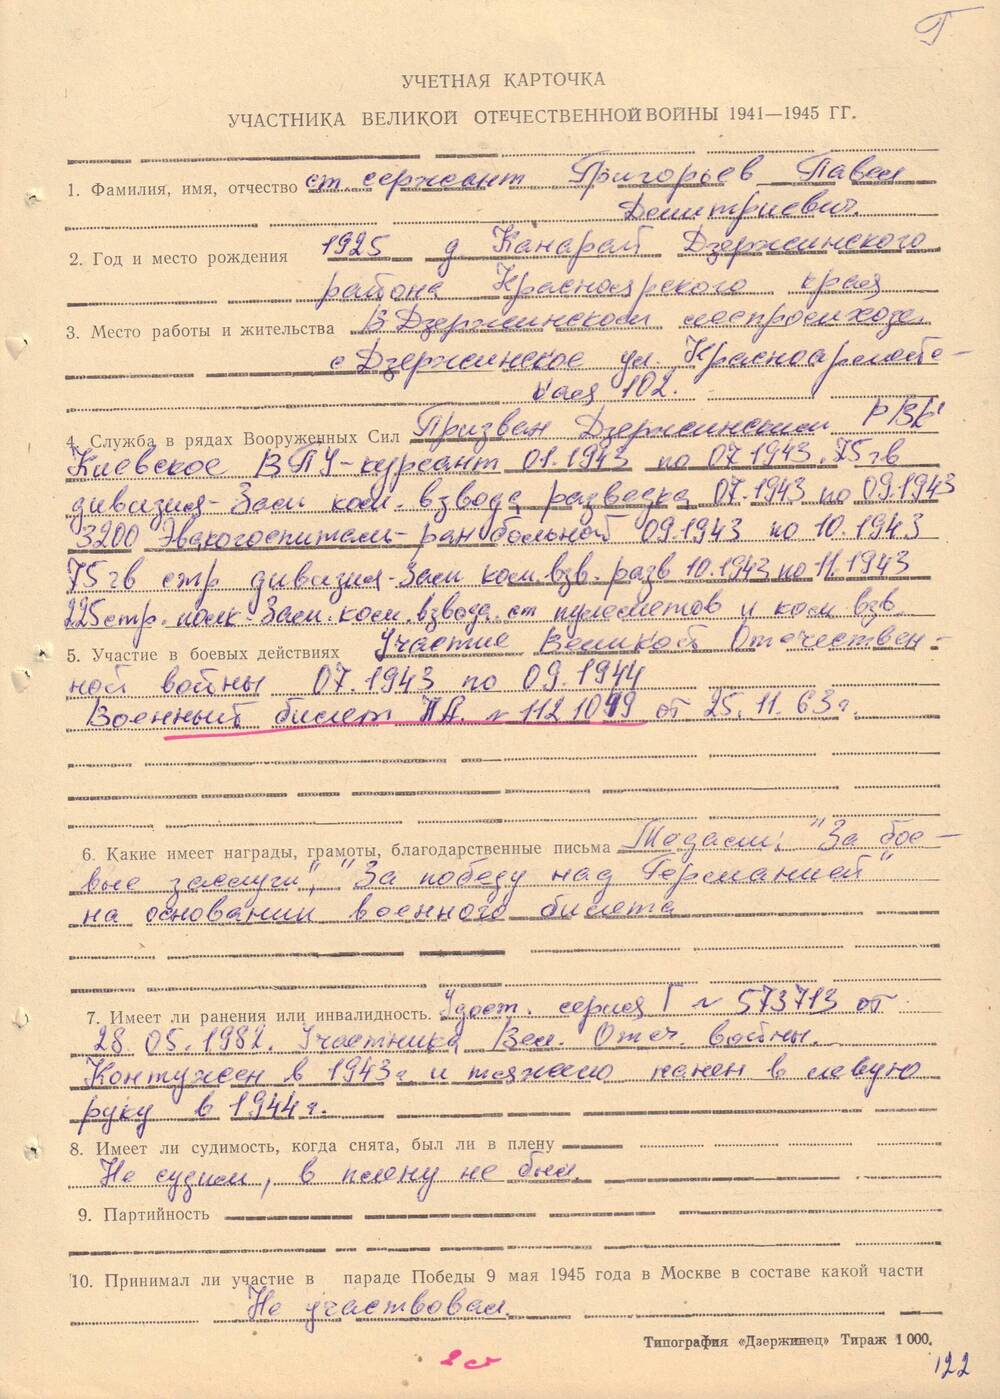 Г
УЧЕТНАЯ КАРТОЧКА
УЧАСТНИКА ВЕЛИКОЙ ОТЕЧЕСТВЕННОЙ ВОЙНЫ 1941—1945 ГГ.
1. Фамилия, имя, отчество ст. сержант Григорьев Павел
Дмитриевич.
2. Год и место рождения 1925 д Канарай Дзержинского
района Красноярского края
3. Место работы и жительства В Дзержинском леспромхозе
с Дзержинское ул. Красноармейс-
кая 102.
4. Служба в рядах Вооруженных Сил Призван Дзержинским РВК
Киевское ВПУ-курсант 01.1943 по 07.1943. 75гв
дивизия-Зам ком. взвода разведка 07.1943 по 09.1943
3200 Эвакогоспиталь-ран больной 09.1943 по 10.1943
75 гв стр дивизия-Зам ком.взв. разв 10.1943 по 11.1943
225стр. полк-Зам. ком. взвода. ст пулеметов и ком взв
5. Участие в боевых действиях Участие Великой Отечествен-
ной войны 07.1943 по 09.1944
Военный билет № 1121099 от 25.11.63г.
6. Какие имеет награды, грамоты, благодарственные письма Медали: "За бое-
вые заслуги", "За победу над Германией"
на основании военного билета
7. Имеет ли ранения или инвалидность. Удост. серия Г № 573713 от
28.05.1982. Участника Вел. Отеч. войны.
Контужен в 1943г и тяжело ранен в левую
руку в 1944г.
8. Имеет ли судимость, когда снята, был ли в плену
Не судим, в плену не был.
9. Партийность
10. Принимал ли участие в параде Победы 9 мая 1945 года в Москве в составе какой части
Не участвовал.
Типография «Дзержинец» Тираж 1 000.
122